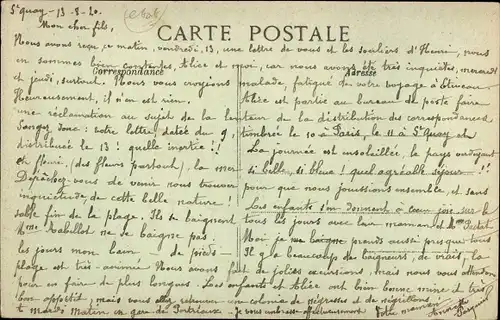 St Quay - 13 - 8 - 20.
CARTE POSTALE
Mon cher fils,
Nous avons reçu, ce matin, vendredi, 13, une lettre de vous et les souliers d'Henri, nous
en sommes bien contentes Alice et moi, car nous avons été très inquiètes, mercredi
Correspondance
Adresse
et jeudi, surtout. Nous vous croyions malade, fatigué de votre voyage à
Heureusement, il n'en est rien. Alice est partie au bureau de poste faire
une réclamation au sujet de la lenteur de la distribution des correspondances
Songez donc : votre lettre, datée du 9, timbrée le 10 à Paris, le 11 à St Quay et
distribuée le 13 ! quelle inertie !! La journée est ensoleillée, le pays
et fleuri, (des fleurs partout), la mer si belle, si bleue ! quel agréable séjour !!
Dépêchez-vous de venir nous trouver pour que nous jouissions ensemble, et sans
inquiétude, de cette belle nature ! Les enfants s'en donnent à cœur joie sur le
sable fin de la plage. Ils se baignent tous les jours avec leur maman et
Mme ne se baigne pas. Moi je me baigne prends aussi presque tous
les jours mon bain — de pieds — Il y a beaucoup de baigneurs, de vrais, la
plage est très animée. Nous avons fait de jolies excursions, mais nous vous attendons
pour en faire de plus longues. Les enfants et Alice ont bien bonne mine et très
bon appétit, mais vous allez retrouver une colonie de négresses et de négrillons
Mardi matin en gare de Portrieux. Je vous embrasse affectueusement Votre maman